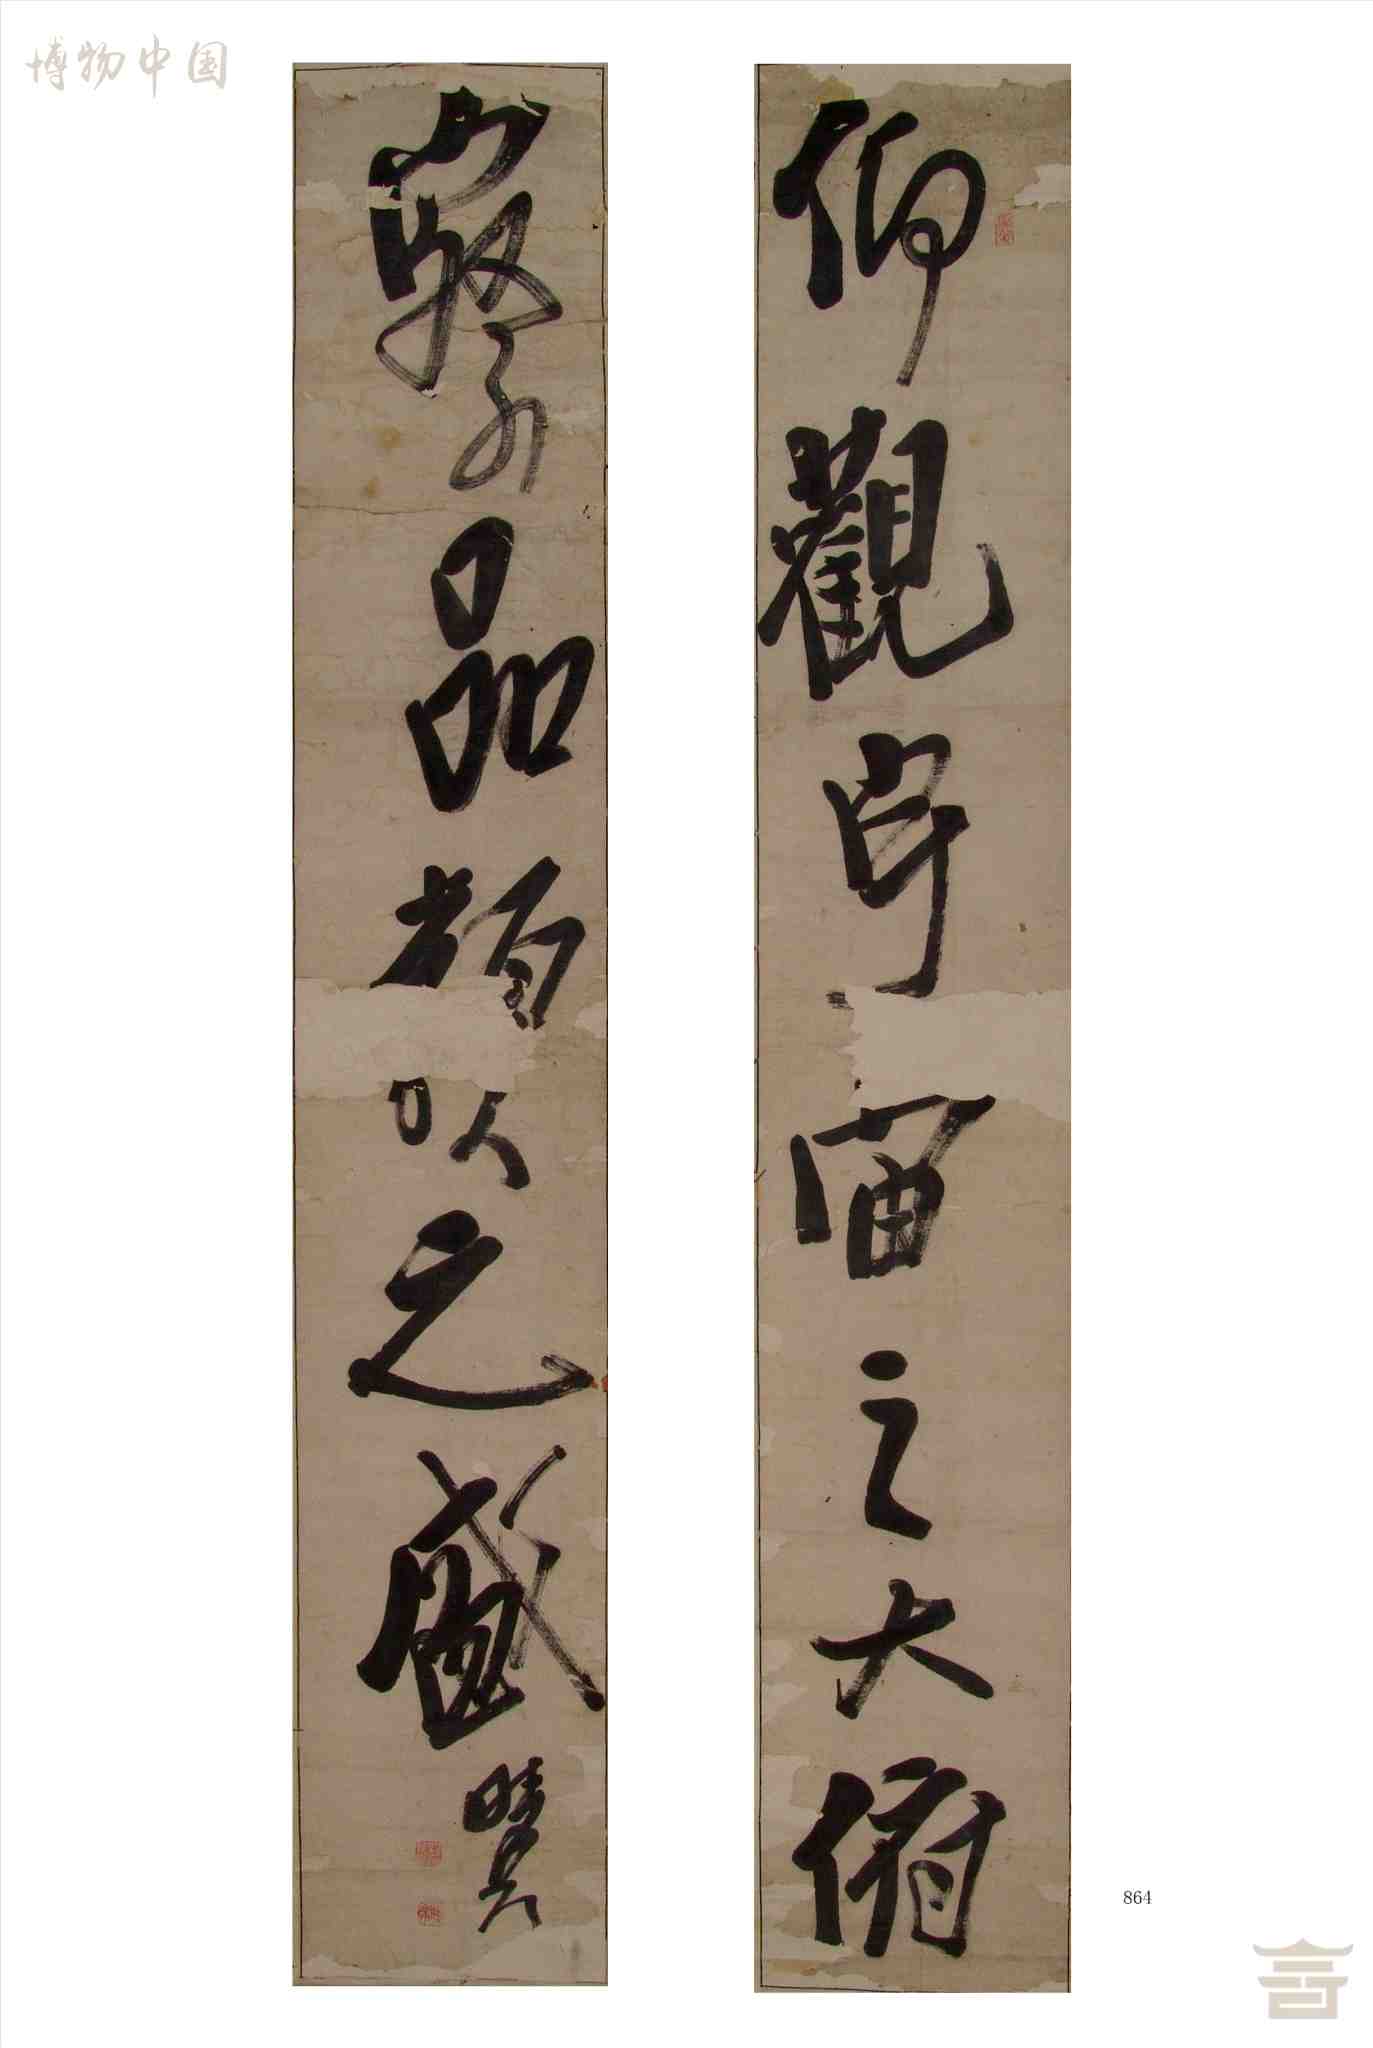 博物中国
仰觀宇宙之大俯
察品類以之盛
864